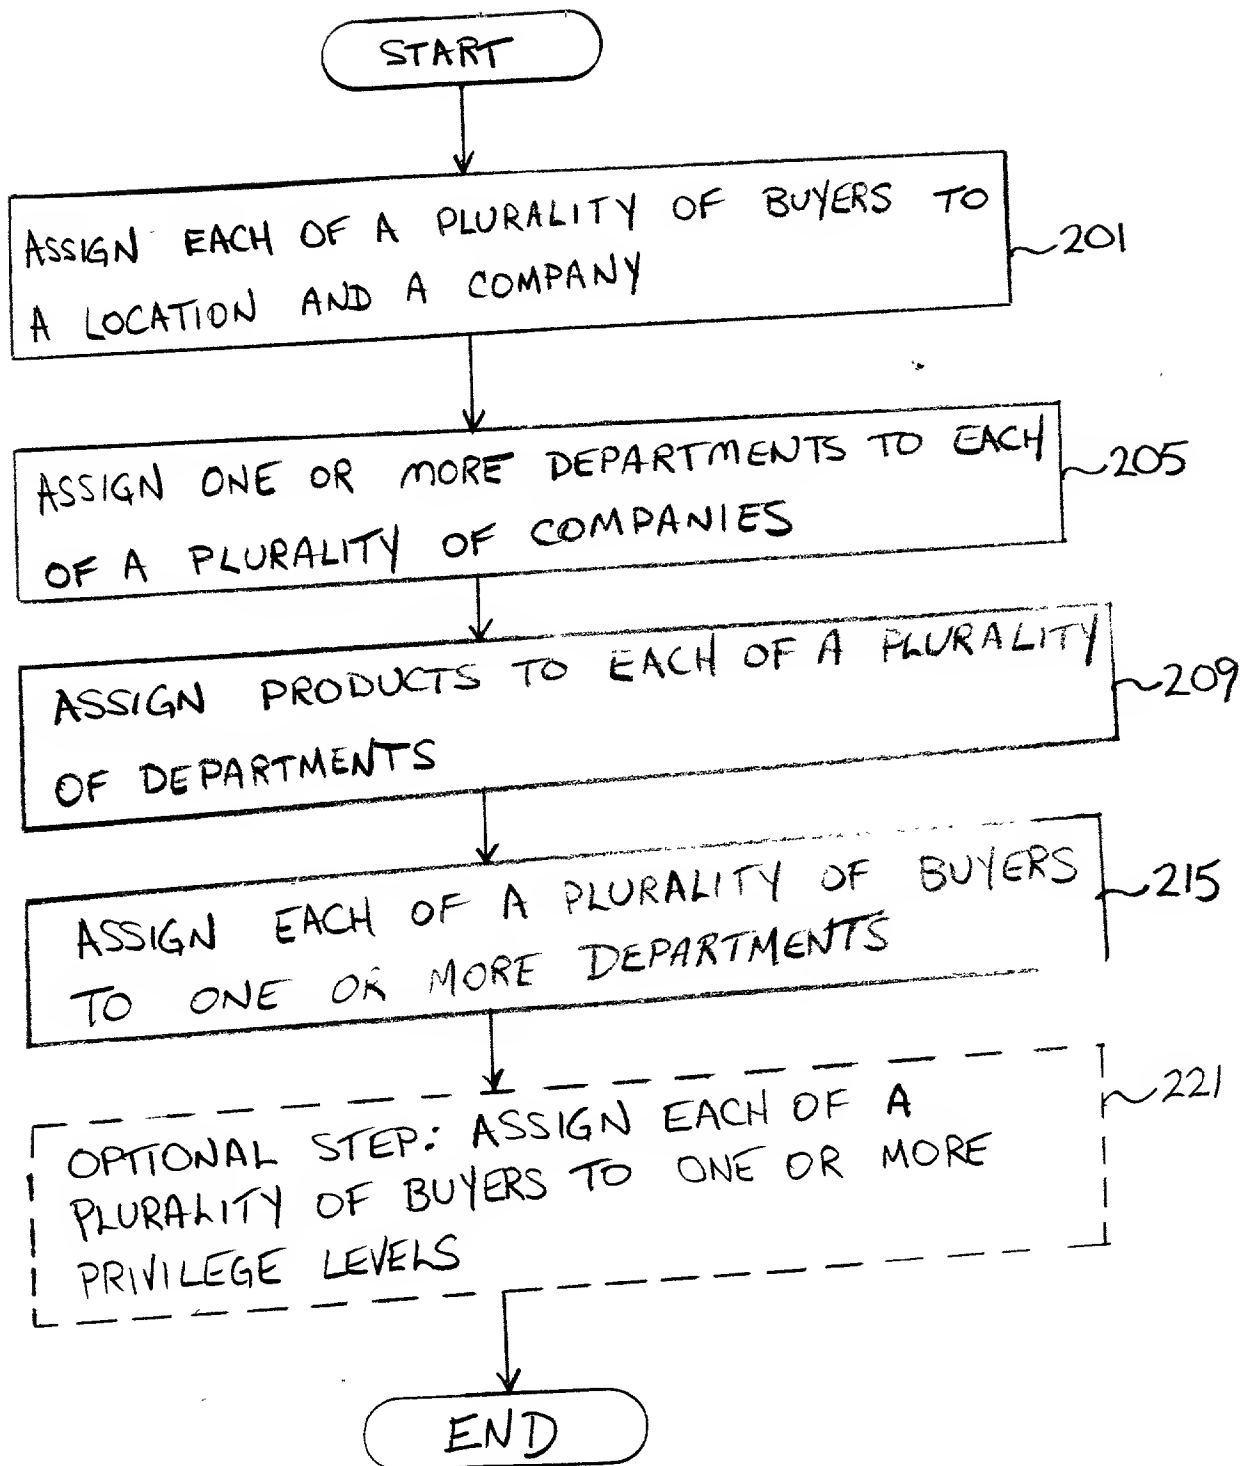 START
ASSIGN EACH OF A PLURALITY OF BUYERS TO
A LOCATION AND A COMPANY
201
ASSIGN ONE OR MORE DEPARTMENTS TO EACH
OF A PLURALITY OF COMPANIES
205
ASSIGN PRODUCTS TO EACH OF A PLURALITY
OF DEPARTMENTS
209
ASSIGN EACH OF A PLURALITY OF BUYERS
TO ONE OR MORE DEPARTMENTS
215
OPTIONAL STEP: ASSIGN EACH OF A
PLURALITY OF BUYERS TO ONE OR MORE
PRIVILEGE LEVELS
221
END